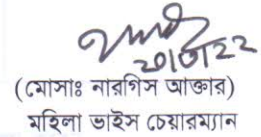 (মোসাঃ নারগিস আক্তার)
মহিলা ভাইস চেয়ারম্যান